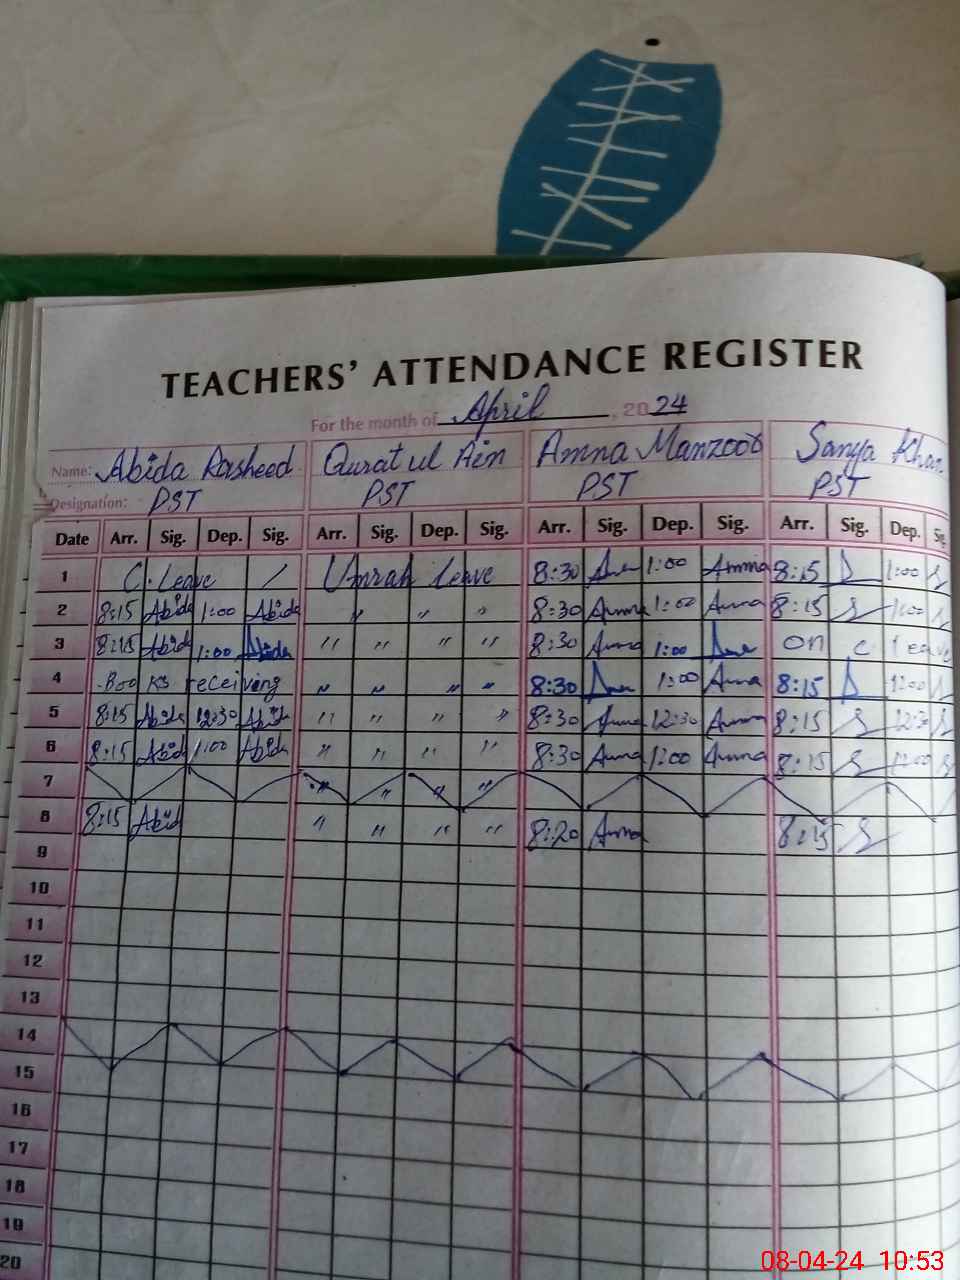 TEACHERS' ATTENDANCE REGISTER
For the month of April, 2024
Name: Abida Rasheed Qurat ul Ain Amna Manzoor Sanya Khan
Designation: PST PST PST PST
Date Arr. Sig. Dep. Sig. Arr. Sig. Dep. Sig. Arr. Sig. Dep. Sig. Arr. Sig. Dep. Sig.
1 C. Leave / Umrah leave 8:30 1:00 Amna 8:15 1:00
2 8:15 Abida 1:00 Abida " " " 8:30 Amna 1:00 Amna 8:15 1:00
3 8:15 Abida 1:00 Abida " " " " 8:30 Amna 1:00 on C leave
4 Books receiving " " " " 8:30 1:00 Amna 8:15 12:00
5 8:15 Abida 12:30 Abida " " " 8:30 Amna 12:30 Amna 8:15 12:30
6 8:15 Abida 1:00 Abida " " " " 8:30 Amna 1:00 Amna 8:15 12:00
7 " " " "
8 8:15 Abid " " " " 8:20 Amna 8:15
9
10
11
12
13
14
15
16
17
18
19
20
08-04-24 10:53